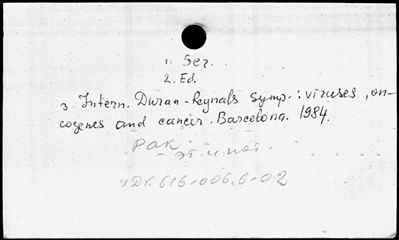 1. Ser.
2. Ed.
3 Intern. Duran-Reynals Symp.: viruses, on-
cogenes and cancer. Barcelona. 1984.
рак -
эт. и пат.
УДК 616-006.6-02